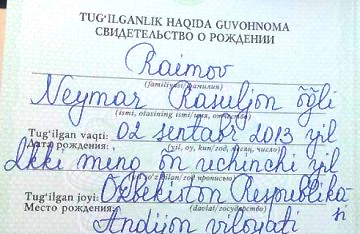 TUG‘ILGANLIK HAQIDA GUVOHNOMA
СВИДЕТЕЛЬСТВО О РОЖДЕНИИ
Raimov
(familiyasi/фамилия)
Neymar Rasuljon o‘g‘li
(ismi, otasining ismi/имя, отчество)
Tug‘ilgan vaqti: 02 sentabr 2013 yil
Дата рождения: (yil, oy, kun/год, месяц, число)
Ikki ming o‘n uchinchi yil
прописью)
Tug‘ilgan joyi: O‘zbekiston Respublika-
si
Место рождения: (davlat/государство)
Andijon viloyati